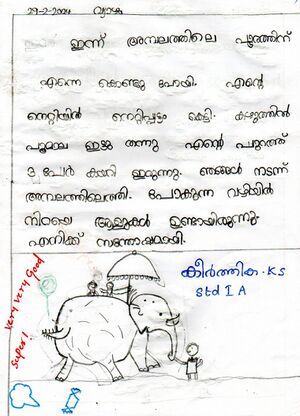 29-2-2024 വ്യാഴം
ഇന്ന് അമ്പലത്തിലെ പൂരത്തിന്
എന്നെ കൊണ്ടു പോയി. എന്റെ
നെറ്റിയിൽ നെറ്റിപ്പട്ടം കെട്ടി. കഴുത്തിൽ
പൂമാല ഇട്ടു തന്നു എന്റെ പുറത്ത്
3 പേർ കയറി ഇരുന്നു. ഞങ്ങൾ നടന്ന്
അമ്പലത്തിലെത്തി. പോകുന്ന വഴിയിൽ
നിറയെ ആളുകൾ ഉണ്ടായിരുന്നു.
എനിക്ക് സന്തോഷമായി.
കീർത്തിക. K S
Std I A
Very very Good
Super!